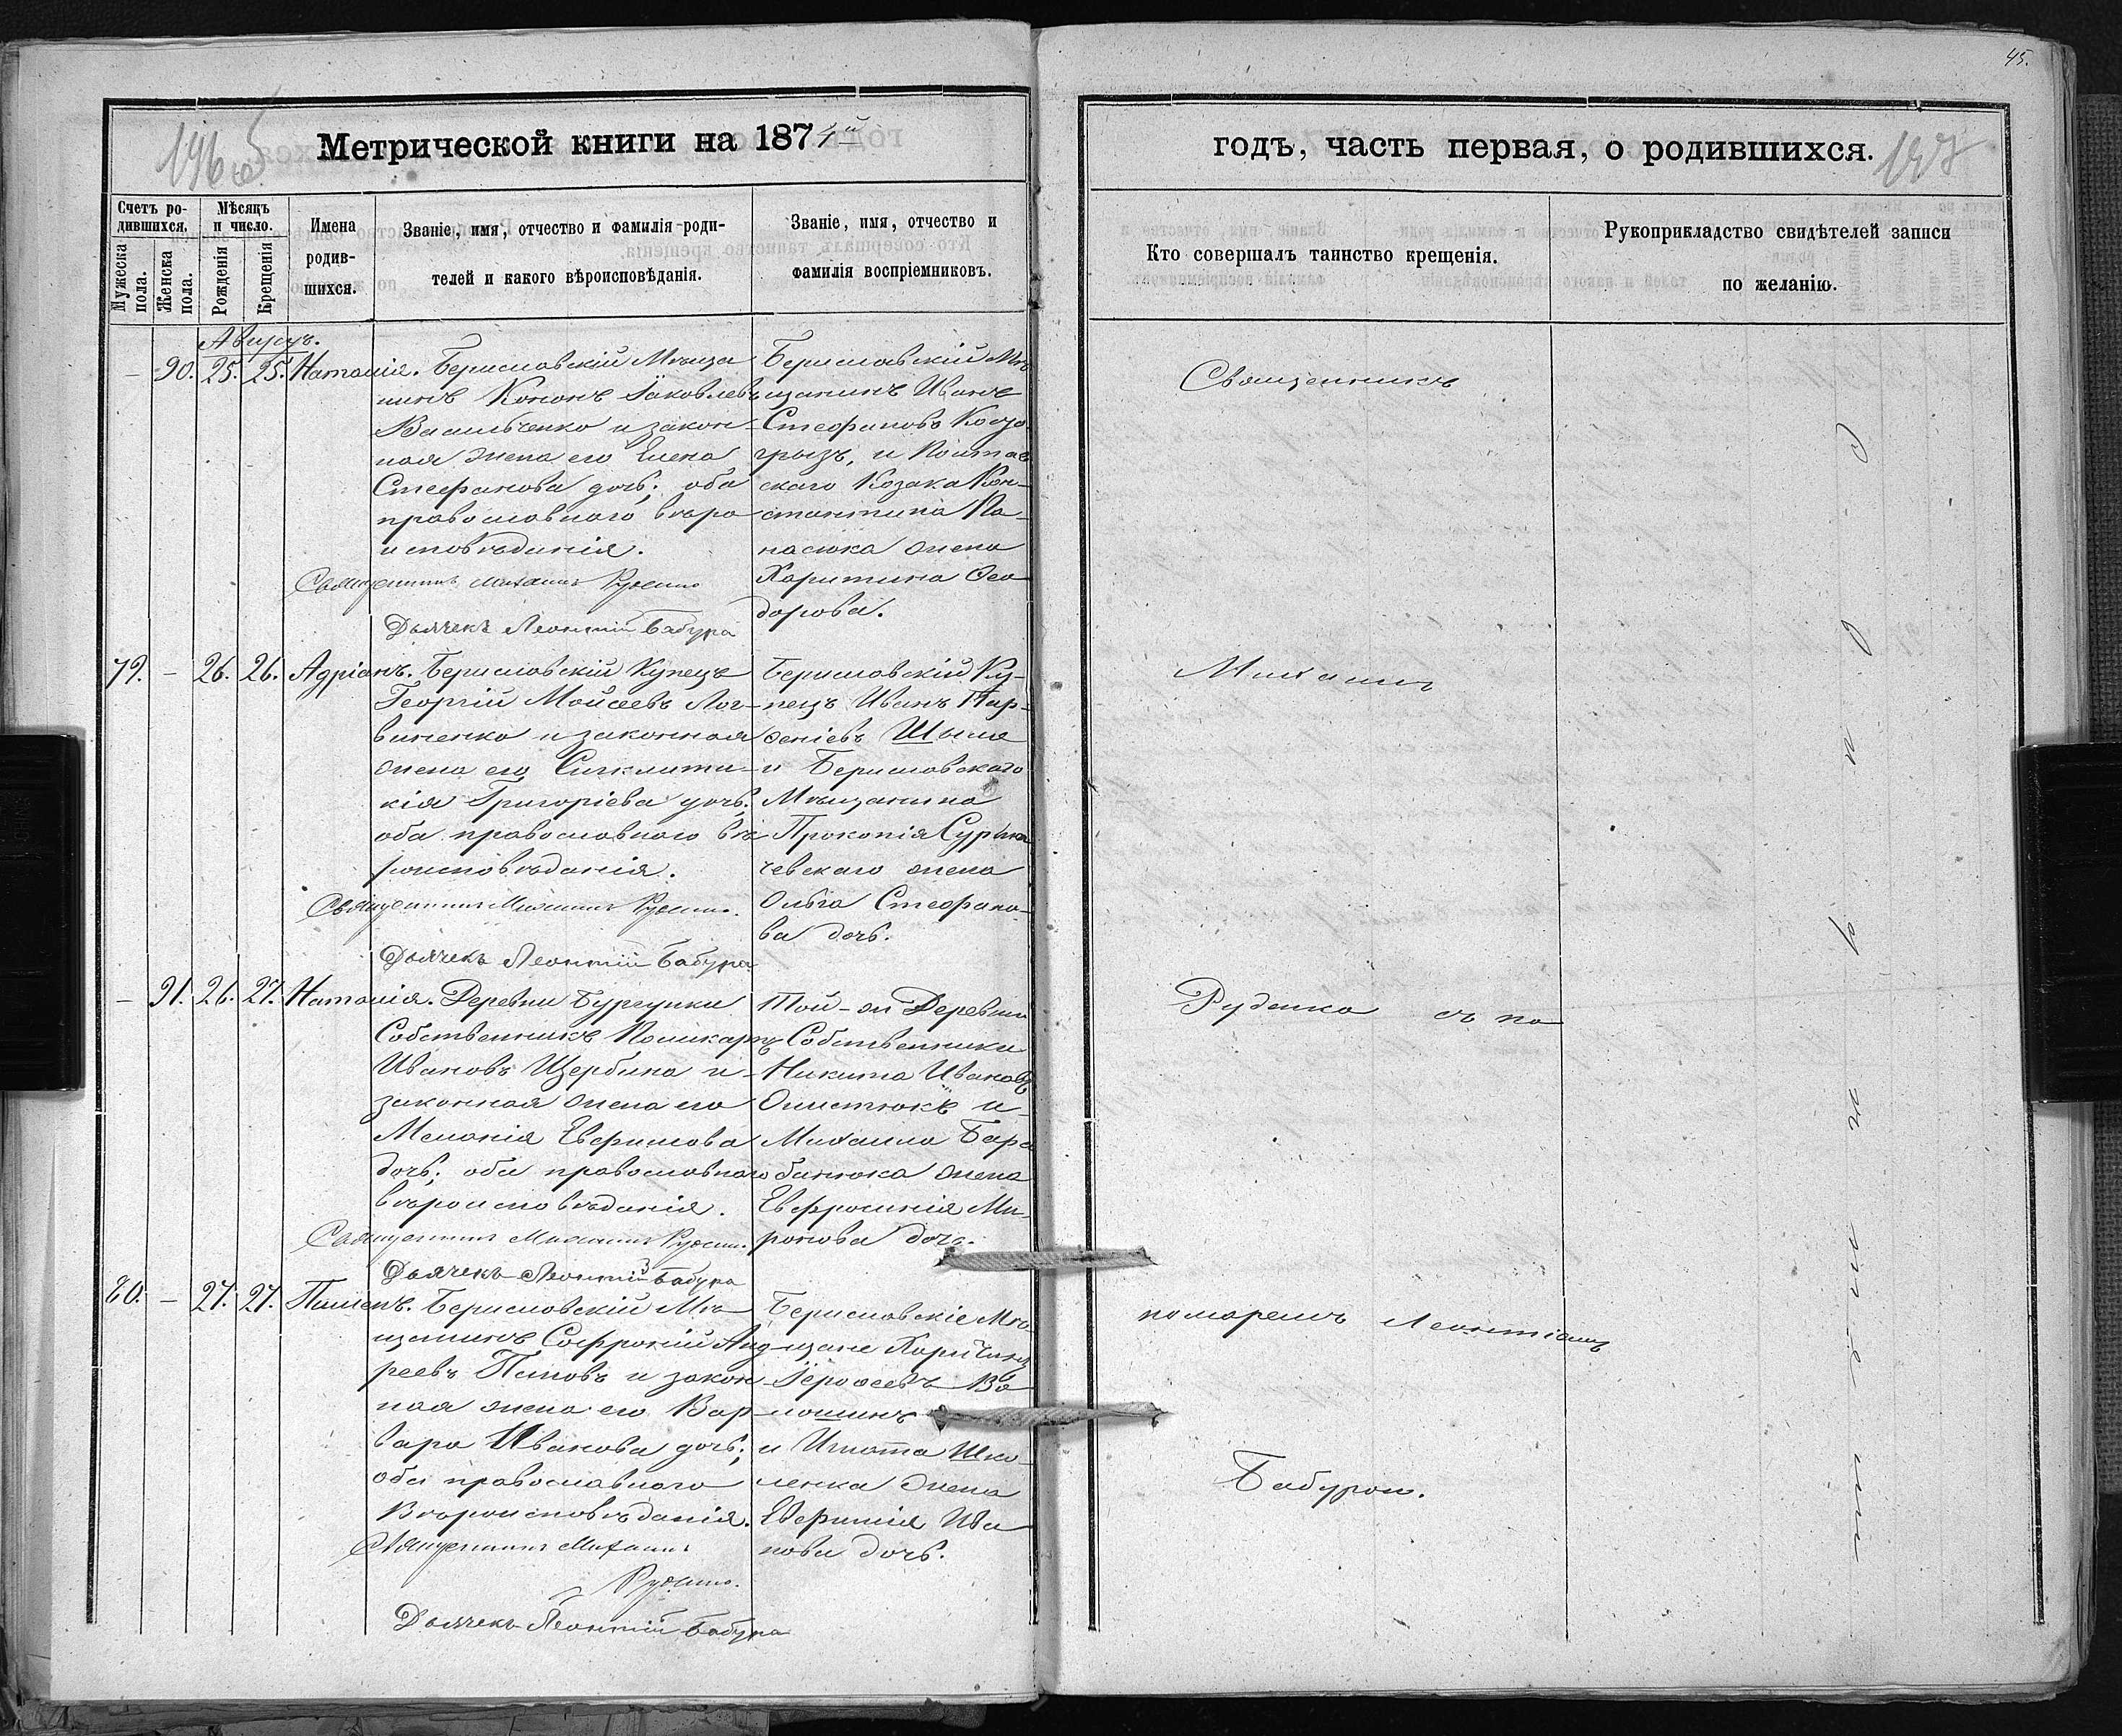 45.
Метрической книги на 1874й
годъ, часть первая, о родившихся.
Счетъ ро-
дившихся.
Мѣсяцъ
и число.
Мужеска
пола.
Женска
пола.
Рожденія
Крещенія
Имена
родив-
шихся.
Званіе, имя, отчество и фамилія роди-
телей и какого вѣроисповѣданія.
Званіе, имя, отчество и
фамилія воспріемниковъ.
Кто совершалъ таинство крещенія.
Рукоприкладство свидѣтелей записи
по желанію.
Августъ.
– 90. 25. 25. Наталія.
Бериславскій Мѣща
нинъ Кононъ Іаковлевъ
Васильченко и закон-
ная жена его Елена
Стефанова дочь; оба
православнаго вѣро
исповѣданія.
Священникъ Михаилъ Руденко
Дьячекъ Леонтій Бабура
Бериславскій Мѣ
щанинъ Иванъ
Стефановъ
грызъ, и Полтав
скаго Козака Кон-
стантина Па-
насюка жена
Харитина Ѳео
дорова.
79. – 26. 26. Адріанъ.
Бериславскій Купецъ
Георгій Мойсеевъ Лог-
виненко и законная
жена его Синклити-
кія Григоріева дочь;
оба православнаго вѣ
роисповѣданія.
Священникъ Михаилъ Руденко.
Дьячекъ Леонтій Бабура
Бериславскій Ку-
пецъ Иванъ Пар-
ѳеніевъ
и Бериславскаго
Мѣщанина
Прокопія
чевскаго жена
Ольга Стефано-
ва дочь.
– 91. 26. 27. Наталія.
Деревни Бургунки
Собственникъ Поликарпъ
Ивановъ Щербина и
законная жена его
Меланія Евфимова
дочь; оба православнаго
вѣроисповѣданія.
Священникъ Михаилъ Руденко.
Дьячекъ Леонтій Бабура
Той-же Деревни
Собственники
Никита Ивановъ
и
Михаила Бара
банюка жена
Евфросинія Ми-
ронова дочь.
80. – 27. 27. Пименъ.
Бериславскій Мѣ
щанинъ Софроній Анд
реевъ Поповъ и закон
ная жена его Вар-
вара Иванова дочь;
оба православнаго
Вѣроисповѣданія.
Священникъ Михаилъ
Руденко.
Дьячекъ Леонтій Бабура
Бериславскіе Мѣ-
щане
Іероѳеевъ Во
лошинъ
и Игната Шко-
ленка жена
Евфимія Ива
нова дочь.
Священникъ
Михаилъ
Руденко съ по
номаремъ Леонтіемъ
Бабурою.